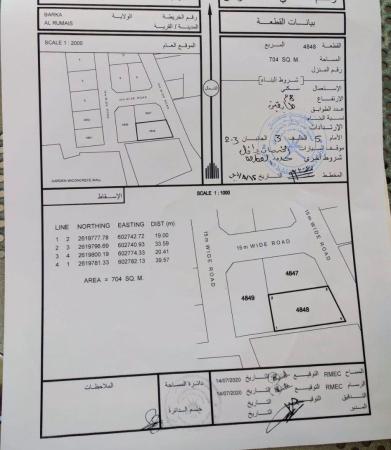 بيانات القطعة
رقم الخريطة
BARKA
الولاية
AL RUMAIS
المدينة / القرية
القطعة 4848 المربع
المساحة 704 SQ. M.
رقم المنزل
( شروط البناء )
الإستعمال سكني
الارتفاع
عدد الطوابق
نسبة البناء
الإرتدادات
الأمام 5 الخلف 3 الجانبان 2-3
موقف سيارات
شروط أخرى
المخطط
التاريخ
SCALE 1 : 2000
الموقع العام
الشمال
15m WIDE ROAD
4848
الإسقاط
SCALE 1 : 1000
LINE NORTHING EASTING DIST (m)
1 2 2619777.78 602742.72 19.00
2 3 2619796.69 602740.93 33.59
3 4 2619800.19 602774.33 20.41
4 1 2619781.33 602782.13 39.57
AREA = 704 SQ. M.
15m WIDE ROAD
15m WIDE ROAD
4847
4849
4848
الملاحظات
دائرة المساحة
ختم الدائرة
المساح RMEC التوقيع التاريخ 14/07/2020
الرسام RMEC التوقيع التاريخ 14/07/2020
التدقيق التوقيع التاريخ
المدير التاريخ